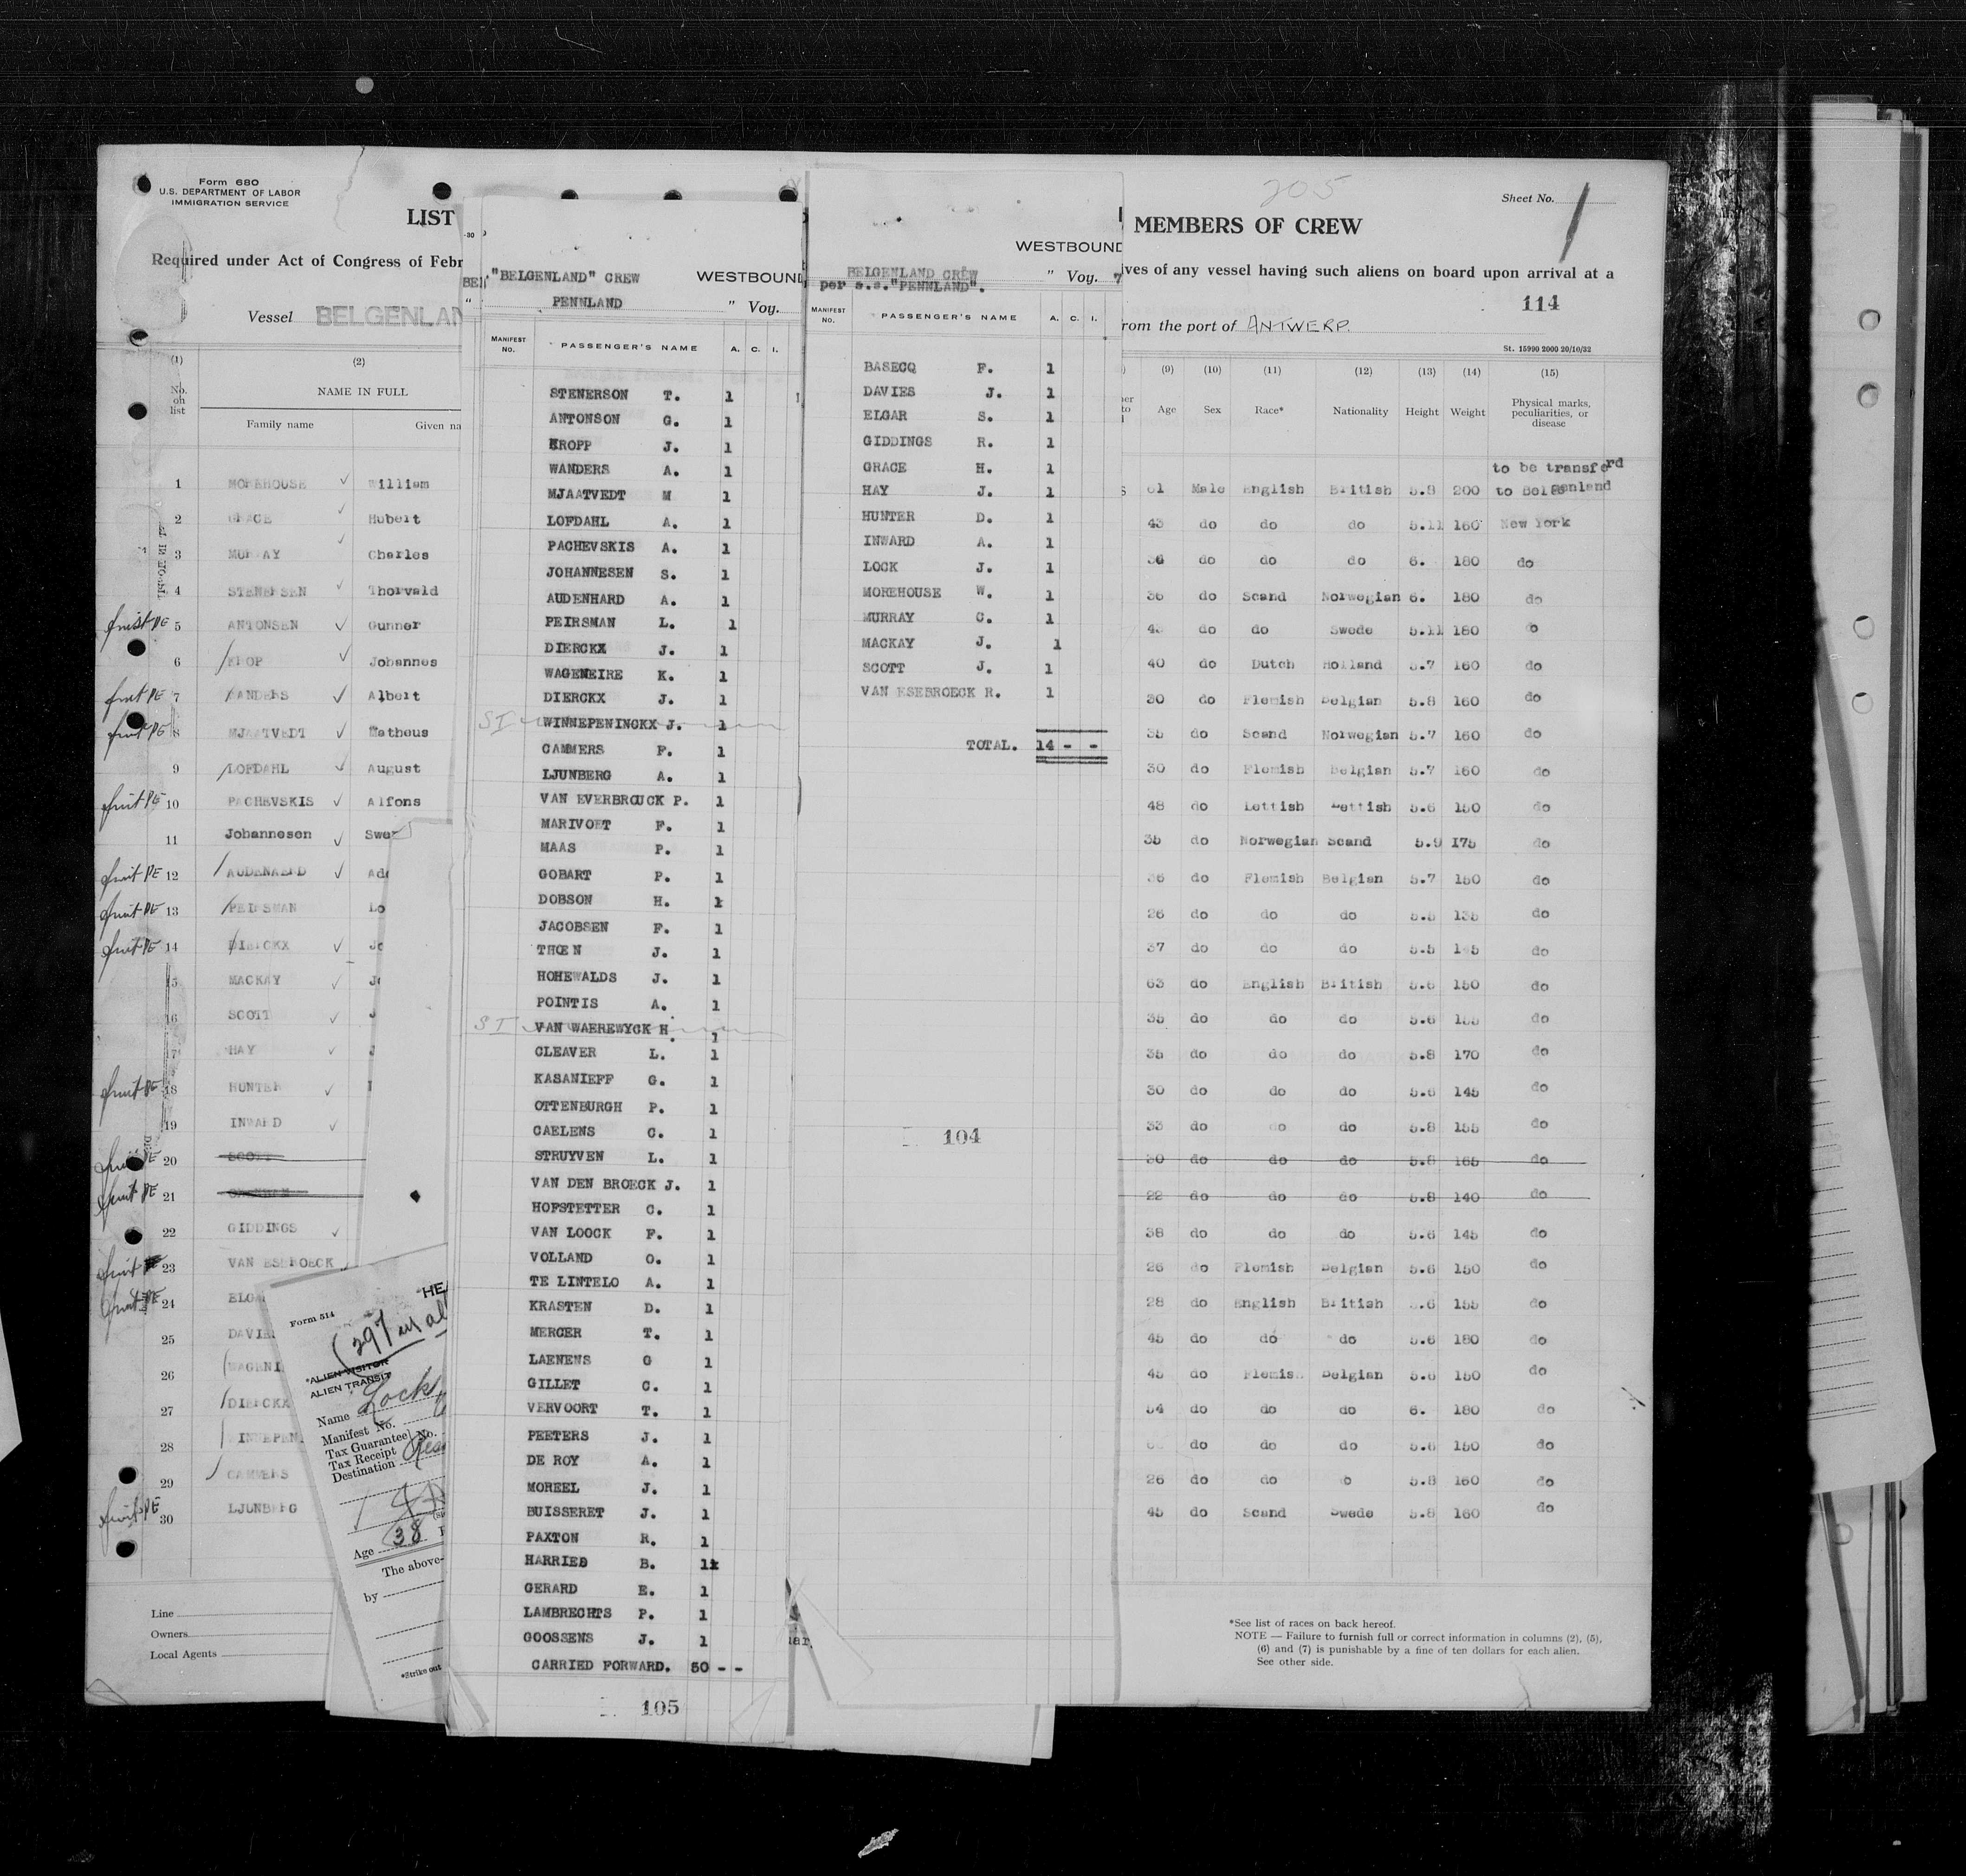 Form 680
U.S. DEPARTMENT OF LABOR
IMMIGRATION SERVICE
LIST
Required under Act of Congress of Febr
Vessel BELGENLAN
(1) (2)
No. on list
NAME IN FULL
Family name Given na
1 MOREHOUSE William
2 GRACE Hubert
3 MURRAY Charles
4 STENERSEN Thorvald
5 ANTONSEN Gunner
6 Johannes
7 Albert
8 MJAATVEDT Matheus
9 LOFDAHL August
10 PACHEVSKIS Alfons
11 Johannesen
12 AUDENAERD
13 PEIRSMAN Lo
14 DIERCKX
15 MACKAY
16 SCOTT
17 HAY
18 HUNTER
19 INWARD
20 SCOTT
21
22 GIDDINGS
23 VAN ESEBROECK
24
25 DAVIE
26
27 DIERCKX
28
29 CAMMERS
30 LJUNBERG
Line
Owners
Local Agents
Form 514
HEA
(297 in al
*ALIEN VISITOR
ALIEN TRANSIT
Name Lock
Manifest No.
Tax Guarantee No.
Tax Receipt
Destination
Age 38
The above-
by
*Strike out
"BELGENLAND" CREW WESTBOUND
PENNLAND " Voy.
MANIFEST NO. PASSENGER'S NAME A. C. I.
STENERSON T. 1
ANTONSON G. 1
KROPP J. 1
WANDERS A. 1
MJAATVEDT M 1
LOFDAHL A. 1
PACHEVSKIS A. 1
JOHANNESEN S. 1
AUDENHARD A. 1
PEIRSMAN L. 1
DIERCKX J. 1
WAGENEIRE K. 1
DIERCKX J. 1
ST WINNEPENINCKX J. 1
CAMMERS F. 1
LJUNBERG A. 1
VAN EVERBROUCK P. 1
MARIVOET F. 1
MAAS P. 1
GOBART P. 1
DOBSON H. 1
JACOBSEN F. 1
THOEN J. 1
HOHEWALDS J. 1
POINTIS A. 1
ST VAN WAEREWYCK H. 1
CLEAVER L. 1
KASANIEFF G. 1
OTTENBURGH P. 1
CAELENS C. 1
STRUYVEN L. 1
VAN DEN BROECK J. 1
HOFSTETTER C. 1
VAN LOOCK F. 1
VOLLAND O. 1
TE LINTELO A. 1
KRASTEN D. 1
MERCER T. 1
LAENENS G 1
GILLET C. 1
VERVOORT T. 1
PEETERS J. 1
DE ROY A. 1
MOREEL J. 1
BUISSERET J. 1
PAXTON R. 1
HARRIED B. 1
GERARD E. 1
LAMBRECHTS P. 1
GOOSSENS J. 1
CARRIED FORWARD. 50 - -
105
WESTBOUND
BELGENLAND CREW " Voy. 7
per s.s."PENNLAND".
MANIFEST NO. PASSENGER'S NAME A. C. I.
BASECQ F. 1
DAVIES J. 1
ELGAR S. 1
GIDDINGS R. 1
GRACE H. 1
HAY J. 1
HUNTER D. 1
INWARD A. 1
LOCK J. 1
MOREHOUSE W. 1
MURRAY C. 1
MACKAY J. 1
SCOTT J. 1
VAN ESEBROECK R. 1
TOTAL. 14 - -
104
205
Sheet No. 1
MEMBERS OF CREW
ives of any vessel having such aliens on board upon arrival at a
114
rom the port of ANTWERP.
St. 15990 2000 20/10/32
(9) (10) (11) (12) (13) (14) (15)
Age Sex Race* Nationality Height Weight Physical marks, peculiarities, or disease
to be transferd
61 Male English British 5.8 200 to Belgenland
43 do do do 5.11 160 New York
36 do do do 6. 180 do
36 do Scand Norwegian 6. 180 do
do do Swede 5.11 180
40 do Dutch Holland 5.7 160 do
30 do Flemish Belgian 5.8 160 do
35 do Scand Norwegian 5.7 160 do
30 do Flemish Belgian 5.7 160 do
48 do Lettish Lettish 5.6 150 do
35 do Norwegian Scand 5.9 175 do
36 do Flemish Belgian 5.7 150 do
26 do do do 5.5 135 do
37 do do do 5.5 145 do
63 do English British 5.6 150 do
35 do do do 5.6 155 do
35 do do do 5.8 170 do
30 do do do 5.6 145 do
33 do do do 5.8 155 do
30 do do do 5.8 165 do
22 do do do 5.8 140 do
38 do do do 5.6 145 do
26 do Flemish Belgian 5.6 150 do
28 do English British 5.6 155 do
45 do do do 5.6 180 do
45 do Flemish Belgian 5.6 150 do
54 do do do 6. 180 do
do do do 5.6 150 do
26 do do 5.8 160 do
45 do Scand Swede 5.8 160 do
*See list of races on back hereof.
NOTE — Failure to furnish full or correct information in columns (2), (5),
(6) and (7) is punishable by a fine of ten dollars for each alien.
See other side.